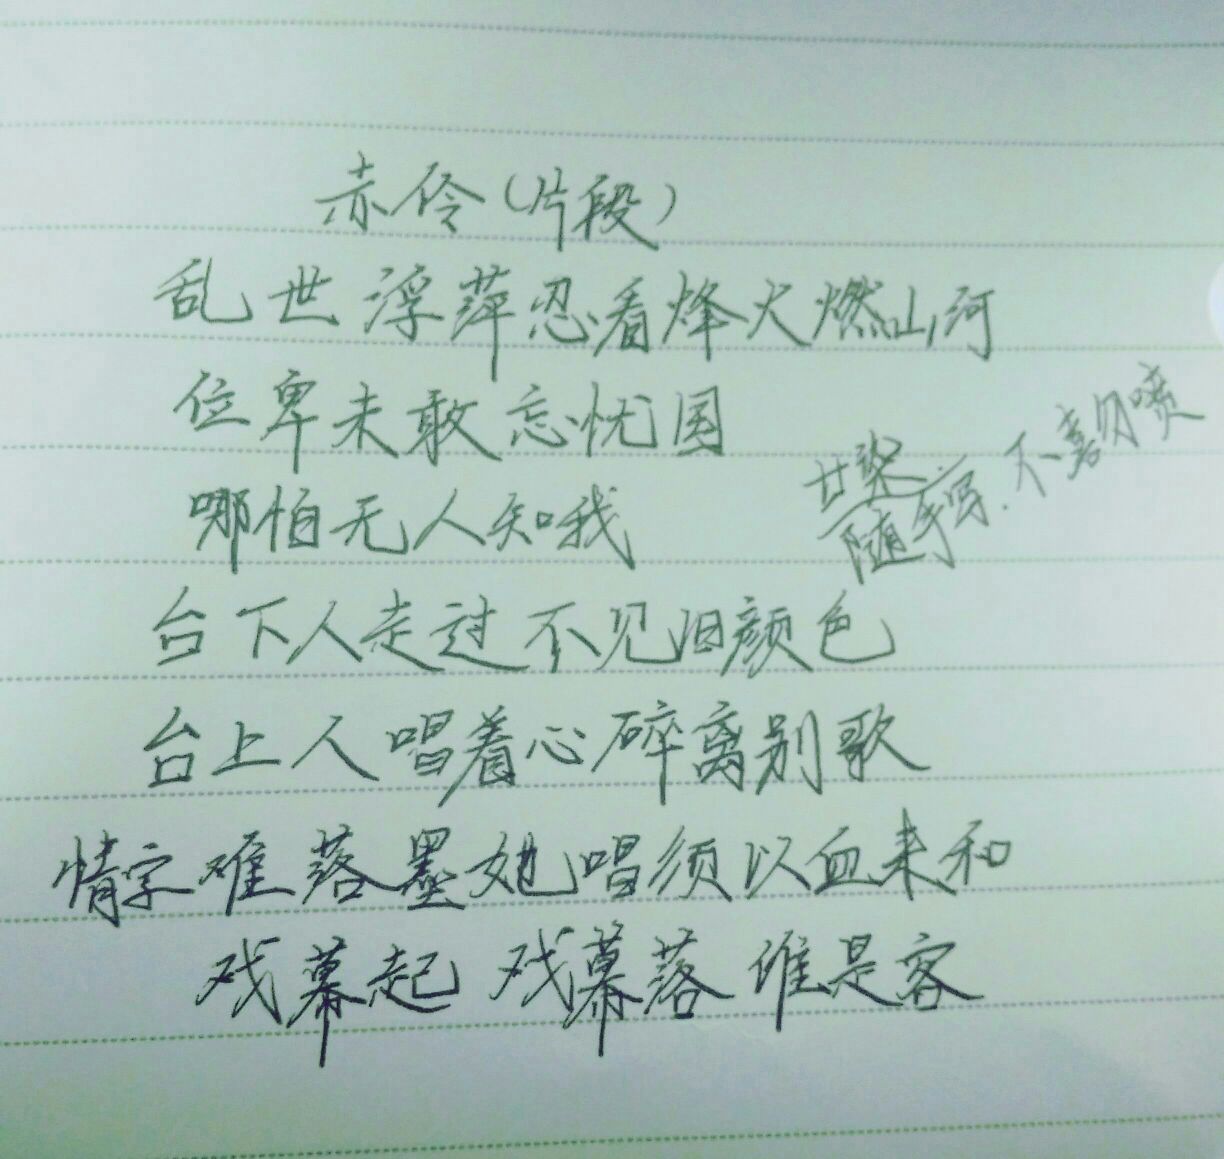 赤伶(片段)
乱世浮萍忍看烽火燃山河
位卑未敢忘忧国
哪怕无人知我
台下人走过不见旧颜色
台上人唱着心碎离别歌
情字难落墨她唱须以血来和
戏幕起 戏幕落 谁是客
随手写.不喜勿喷